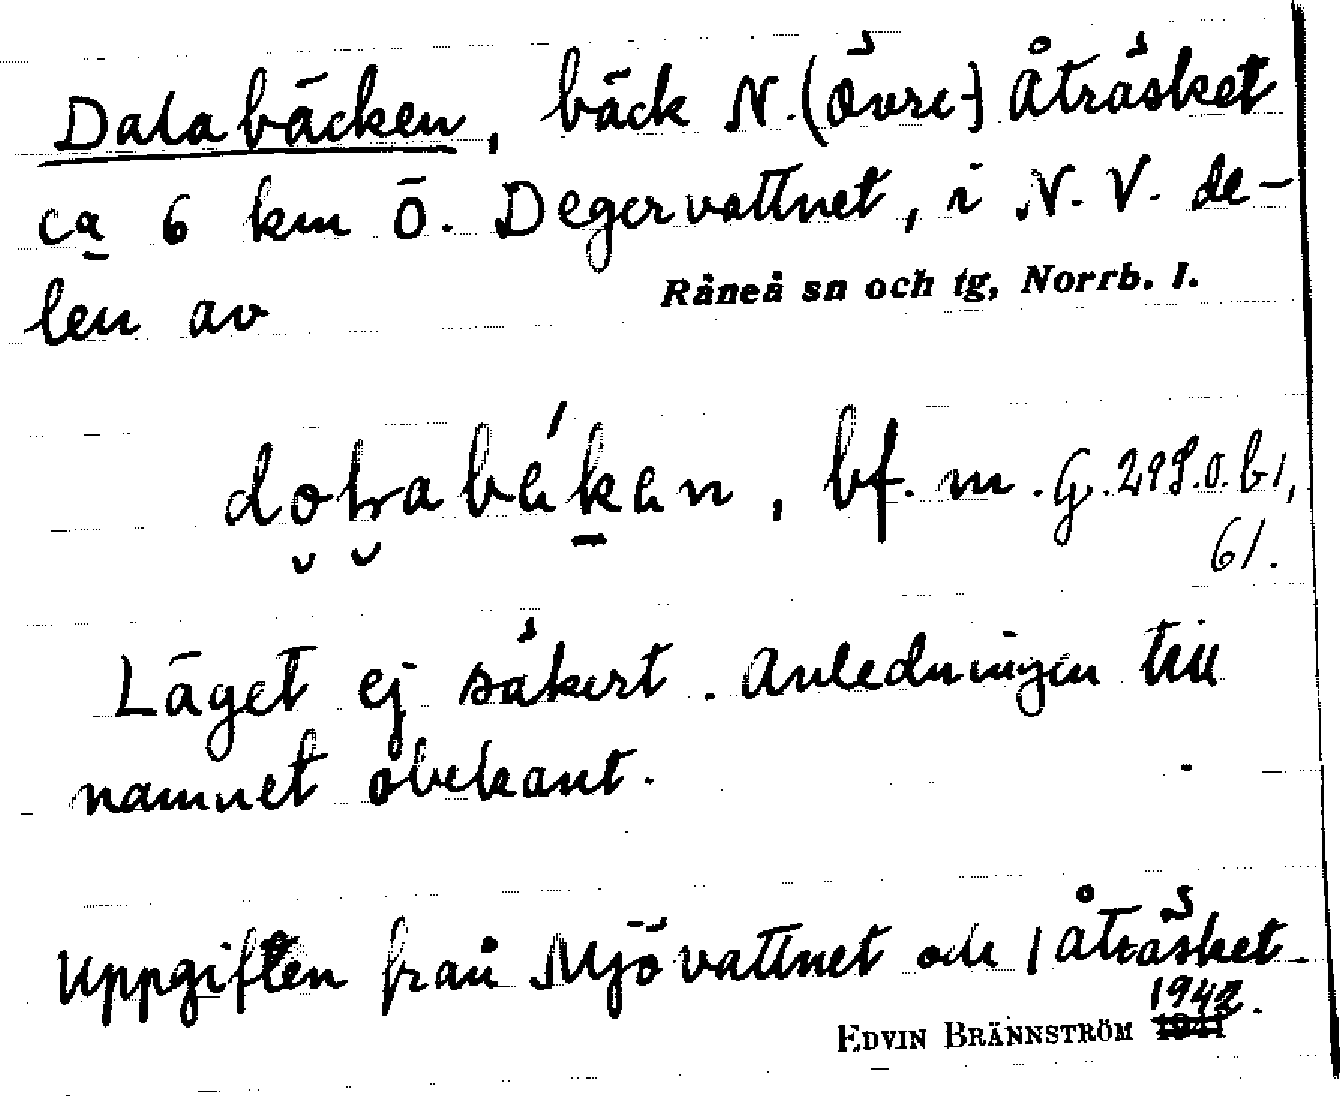 Dalabäcken, bäck N. (Övre-) Åträsket
ca 6 km Ö. Degervattnet, i N. V. de-
len av Råneå sn och tg, Norrb. l.
bf. m. G. 298.0. b1,
61.
Läget ej säkert. Anledningen till
namnet obekant.
Uppgiften från Mjövattnet och Åträsket.
1942.
EDVIN BRÄNNSTRÖM 1941